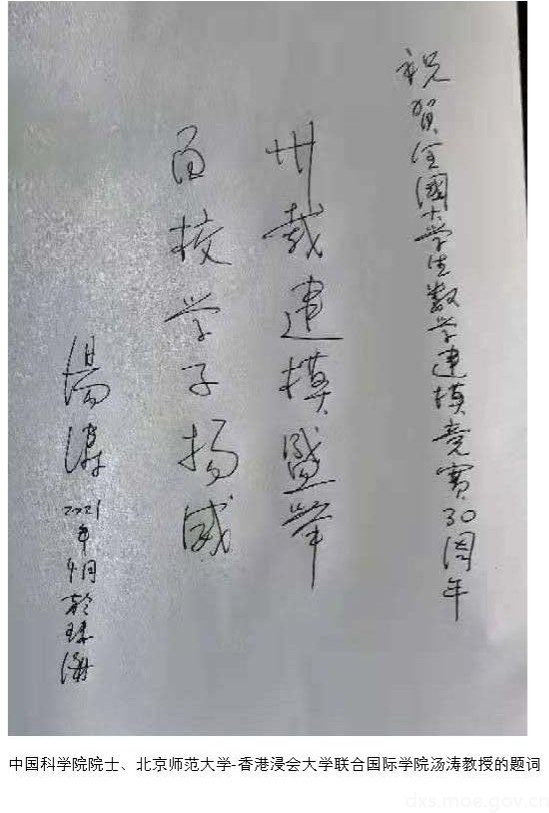 祝贺全國大学生数学建模竞赛30周年
卅载建模盛举
百校学子扬威
汤涛
2021年4月於珠海
中国科学院院士、北京师范大学-香港浸会大学联合国际学院汤涛教授的题词
dxs.moe.gov.cn